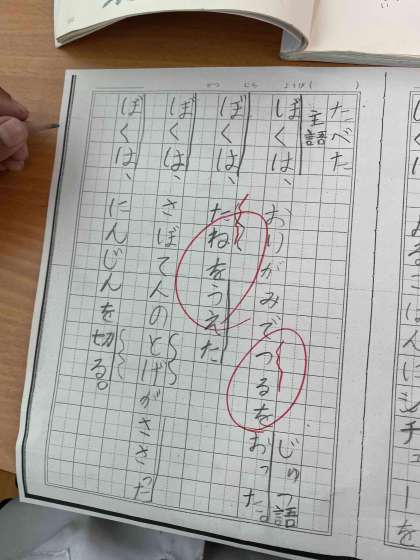 たべた
主語
ぼくは、おりがみでつるをおった
じゅつ語
ぼくは、たねをうえた
ぼくは、さぼて人のとげがささった
ぼくは、にんじんを切る。